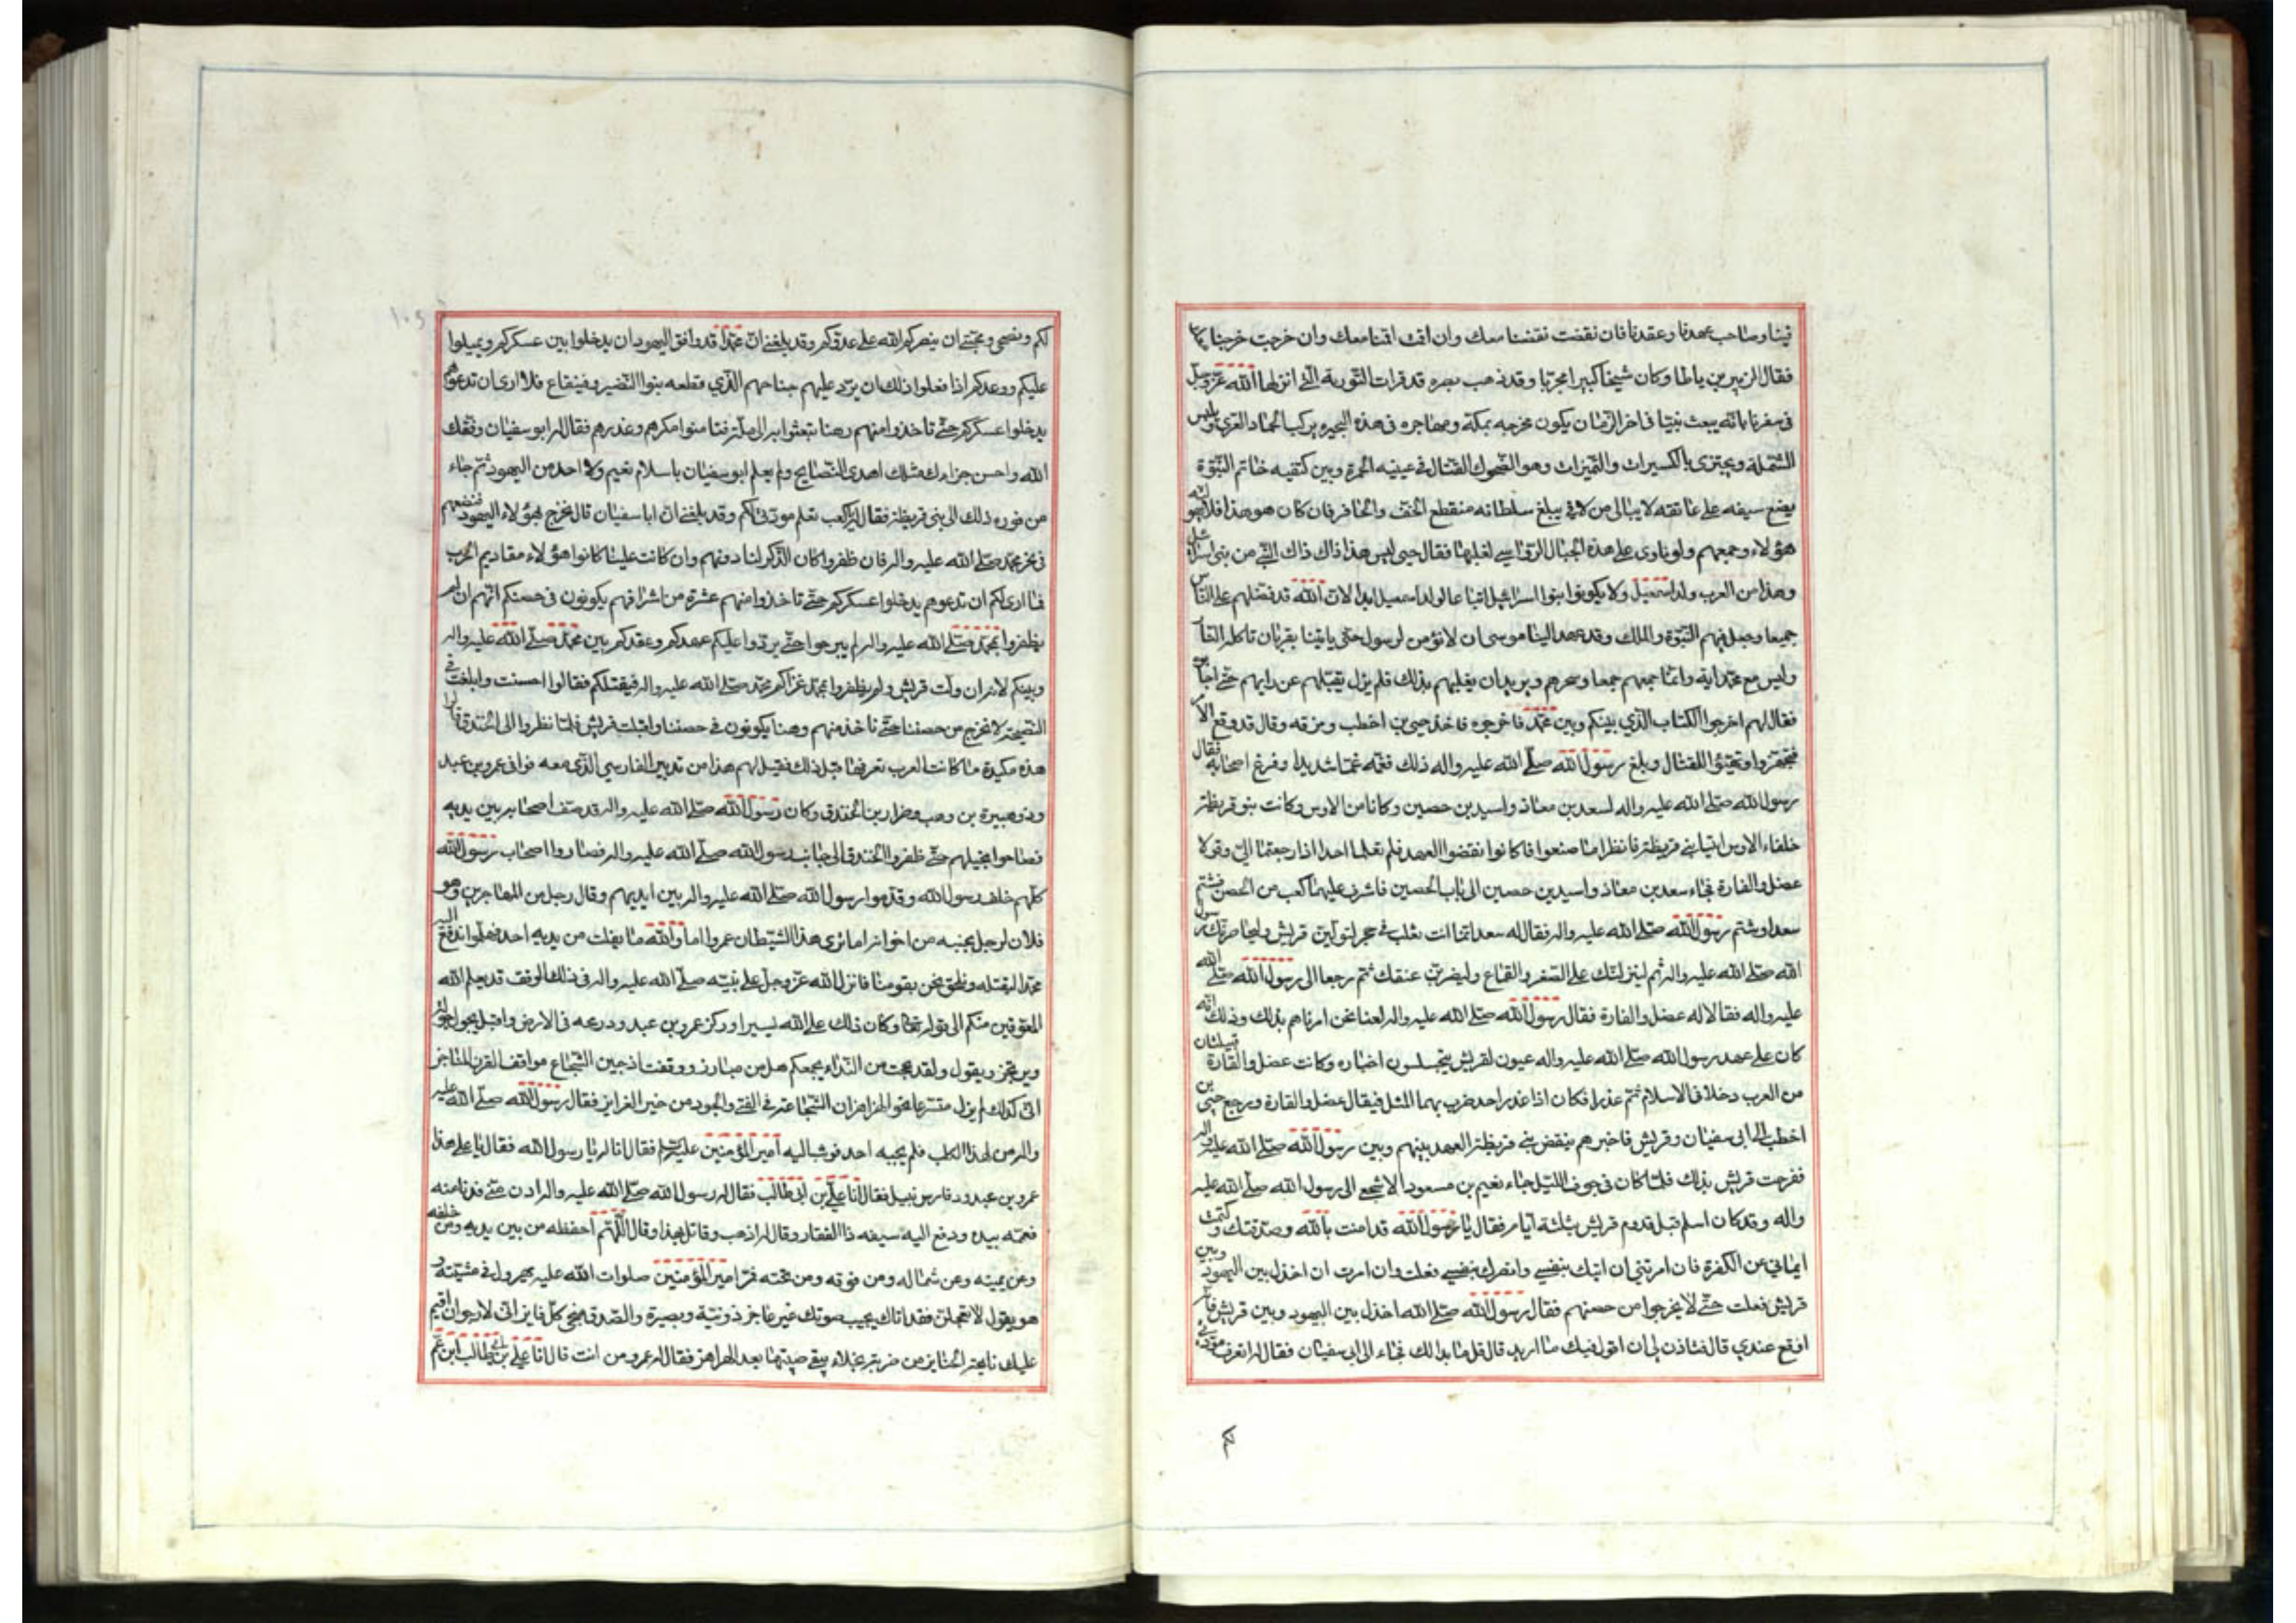 فينا وصاحب عهدنا وعقدنا فان نقضت نقضنا معك وان اقمت اقمنا معك وان خرجت خرجنا معك
فقال الزبير بن باطا وكان شيخا كبيرا مجربا وقد ذهب بصره قد قرات التورية التي انزلها الله عزوجل
في سفرنا بانه يبعث نبيا في اخر الزمان يكون مخرجه بمكة ومهاجره في هذه البحيره يركب الحمار العري ويلبس
الشملة ويجتزى بالكسيرات والتميرات وهو الضحوك القتال في عينيه الحمرة وبين كتفيه خاتم النبوة
يضع سيفه على عاتقه لا يبالى من لاقى يبلغ سلطانه منقطع الخف والحافر فان كان هو هذا فلا يهولنه
هؤلاء وجمعهم ولو ناوى على هذه الجبال الرواسي لغلبها فقال حيى ليس هذا ذاك ذاك النبي من بنى اسرائيل
وهذا من العرب ولد اسمعيل ولا يكونوا بنوا اسرائيل اتباعا لولد اسمعيل ابدا لان الله قد فضلهم على الناس
جميعا وجعل فيهم النبوة والملك وقد عهد الينا موسى ان لا نؤمن لرسول حتى ياتينا بقربان تاكله النار
وليس مع محمد اية وانما جمعهم جمعا وسحرهم ويريد ان يغلبهم بذلك فلم يزل يقبلهم عن رايهم حتى اجابوه
فقال لهم اخرجوا الكتاب الذي بينكم وبين محمد فاخرجوه فاخذ حيى بن اخطب ومزقه وقال قد وقع الامر
فتجهزوا وتهيئوا للقتال وبلغ رسول الله صلى الله عليه واله ذلك فغمه غما شديدا وفزع اصحابه فقال
رسول الله صلى الله عليه واله لسعد بن معاذ واسيد بن حصين وكانا من الاوس وكانت بنو قريظة
حلفاء الاوس ائتيا بني قريظة فانظرا ما صنعوا فا كانوا نقضوا العهد فلم تعلما احدا اذا رجعتما الى وقولا
عضل والقارة فجاء سعد بن معاذ واسيد بن حصين الى باب الحصين فاشرف عليهما كعب من الحصن فشتم
سعدا وشتم رسول الله صلى الله عليه واله فقال له سعد انما انت ثعلب في جحر لتولين قريش وليحاصرنك رسول
الله صلى الله عليه واله ثم لينزلنك على الصغر والقماع وليضربن عنقك ثم رجعا الى رسول الله صلى الله
عليه واله فقالا له عضل والقارة فقال رسول الله صلى الله عليه واله لعنا نحن امرناهم بذلك وذلك انه
كان على عهد رسول الله صلى الله عليه واله عيون لقريش يتجسسون اخباره وكانت عضل والقارة قبيلتان
من العرب دخلا في الاسلام ثم غدرا فكان اذا غدر احد ضرب بهما المثل فيقال عضل والقارة ورجع حيى بن
اخطب الى ابى سفيان وقريش فاخبرهم بنقض بني قريظة العهد بينهم وبين رسول الله صلى الله عليه واله
ففرحت قريش بذلك فلما كان في جوف الليل جاء نعيم بن مسعود الاشجعي الى رسول الله صلى الله عليه
واله وقد كان اسلم قبل قدوم قريش بثلثة ايام فقال يا رسول الله قد امنت بالله وصدقتك وكتمت
ايماني عن الكفرة فان امرتني ان اتيك بنفسي وانصرك بنفسي فعلت وان امرت ان اخذل بين اليهود وبين
قريش فعلت حتى لا يخرجوا من حصنهم فقال رسول الله صلى الله اخذل بين اليهود وبين قريش فانه
اوقع عندي قال فتاذن لى ان اقول فيك ما اريد قال قل ما بدا لك فجاء الى ابى سفيان فقال له اتعرف مودتي
لكم
لكم ونصحى ومحبتي ان ينصركم الله على عدوكم وقد بلغني ان محمدا قد وافق اليهود ان يدخلوا بين عسكركم ويميلوا
عليكم ووعدكم اذا فعلوا ذلك ان يرد عليهم جناحهم الذي قطعه بنوا النضير وقينقاع فلا ارى ان تدعوهم
يدخلوا عسكركم حتى تاخذوا منهم رهنا تبعثوا به الى مكة فتامنوا مكرهم وغدرهم فقال له ابو سفيان وفقك
الله واحسن جزاءك مثلك اهدى النصايح ولم يعلم ابو سفيان باسلام نعيم ولا احد من اليهود ثم جاء
من فوره ذلك الى بنى قريظة فقال له يا كعب تعلم مودتى لكم وقد بلغني ان ابا سفيان قال نخرج هؤلاء اليهود فنضعهم
في نحر محمد صلى الله عليه واله فان ظفروا كان الذكر لنا دونهم وان كانت علينا كانوا هؤلاء مقاديم الحرب
فما ارى لكم ان تدعوهم يدخلوا عسكركم حتى تاخذوا منهم عشرة من اشرافهم يكونون في حصنكم انهم ان لم
يظفروا بمحمد صلى الله عليه واله لم يبرحوا حتى يردوا عليكم عهدكم وعقدكم بين محمد صلى الله عليه واله
وبينكم لانه ان ولت قريش ولم يظفروا بمحمد غزاكم محمد صلى الله عليه واله فيقتلكم فقالوا احسنت وابلغت في
النصيحة لا نخرج من حصننا حتى ناخذ منهم رهنا يكونون في حصننا واقبلت قريش فلما نظروا الى الخندق قالوا
هذه مكيدة ما كانت العرب تعرفها قبل ذلك فقيل لهم هذا من تدبير الفارسي الذي معه فوافى عمرو بن عبد
ود وهبيرة بن وهب وضرار بن الخندق وكان رسول الله صلى الله عليه واله قد صف اصحابه بين يديه
فصاحوا بخيلهم حتى ظفروا الخندق الى جانب رسول الله صلى الله عليه واله فصاروا اصحاب رسول الله
كلهم خلف رسول الله وقدموا رسول الله صلى الله عليه واله بين ايديهم وقال رجل من المهاجرين وهو
فلان لرجل بجنبه من اخوانه اما ترى هذا الشيطان عمروا اما والله ما يفلت من يديه احد فهلموا ندفع اليه
محمدا ليقتله ونلحق نحن بقومنا فانزل الله عزوجل على نبيه صلى الله عليه واله في ذلك الوقت قد يعلم الله
المعوقين منكم الى قوله تعالى وكان ذلك على الله يسيرا وركز عمرو بن عبد ود رمحه في الارض واقبل يجول حوله
ويرتجز ويقول ولقد بححت من النداء بجمعكم هل من مبارز ووقفت اذ جبن الشجاع مواقف القرن المناجز
انى كذلك لم ازل متسرعا نحو الهزاهز ان الشجاعة في الفتى والجود من خير الغرايز فقال رسول الله صلى الله عليه
واله من لهذا الكلب فلم يجبه احد فوثب اليه امير المؤمنين عليه السلام فقال انا له يا رسول الله فقال يا على هذا
عمرو بن عبد ود فارس نبيل فقال انا علي بن ابى طالب فقال له رسول الله صلى الله عليه واله ادن منى فدنا منه
فعممه بيده ودفع اليه سيفه ذا الفقار وقال له اذهب وقاتل بهذا وقال اللهم احفظه من بين يديه ومن خلفه
وعن يمينه وعن شماله ومن فوقه ومن تحته فمر امير المؤمنين صلوات الله عليه يهرول في مشيته و
هو يقول لا تعجلن فقد اتاك مجيب صوتك غير عاجز ذونية وبصيرة والصدق منجى كل فايز انى لارجوان اقيم
عليك نايحة الجنايز من ضربة نجلاء يبقى صيتها بعد الهزاهز فقال له عمرو من انت قال انا علي بن ابى طالب ابن عم